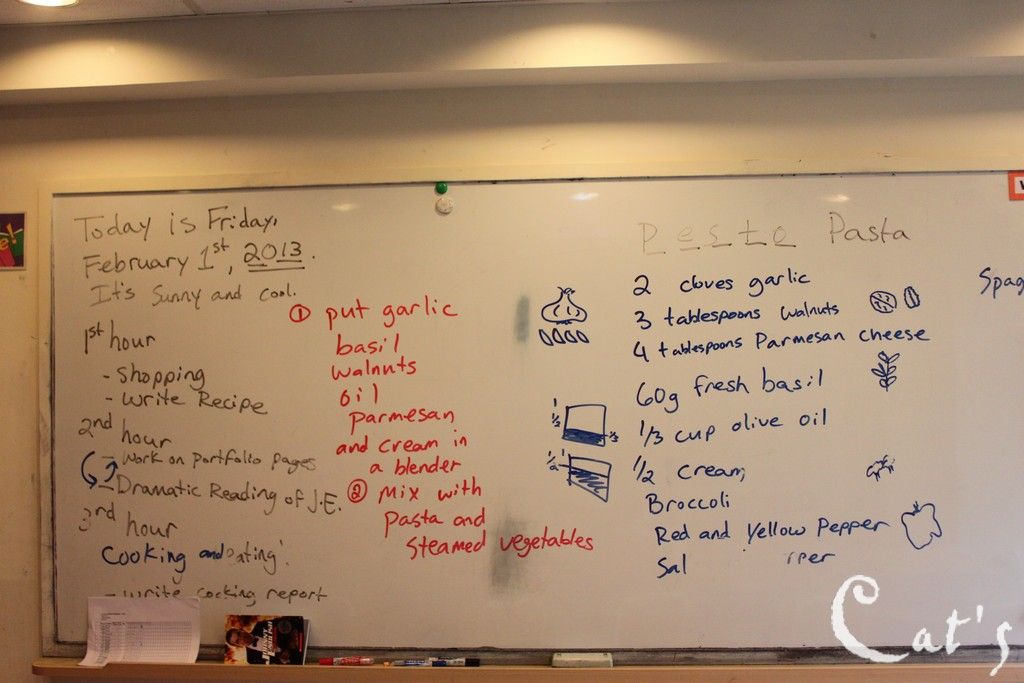 Today is Friday,
February 1st, 2013.
It's Sunny and Cool.
1st hour
- Shopping
- Write Recipe
2nd hour
- Work on Portfolio pages
- Dramatic Reading of J.E.
3rd hour
Cooking and eating!
- Write cooking report
① put garlic
basil
walnuts
oil
parmesan
and cream in
a blender
② Mix with
Pasta and
Steamed vegetables
Pesto Pasta
2 cloves garlic
3 tablespoons walnuts
4 tablespoons Parmesan cheese
60g fresh basil
1/3 cup olive oil
1/2 cream,
Broccoli
Red and Yellow Pepper
Sal
Spag
1
1/2
1/3
1
1/2
Cat's